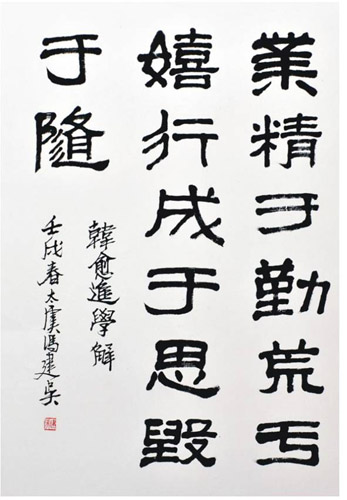 業精于勤荒于
嬉行成于思毀
于隨
韓愈進學解
壬戌春太虞馮建吳